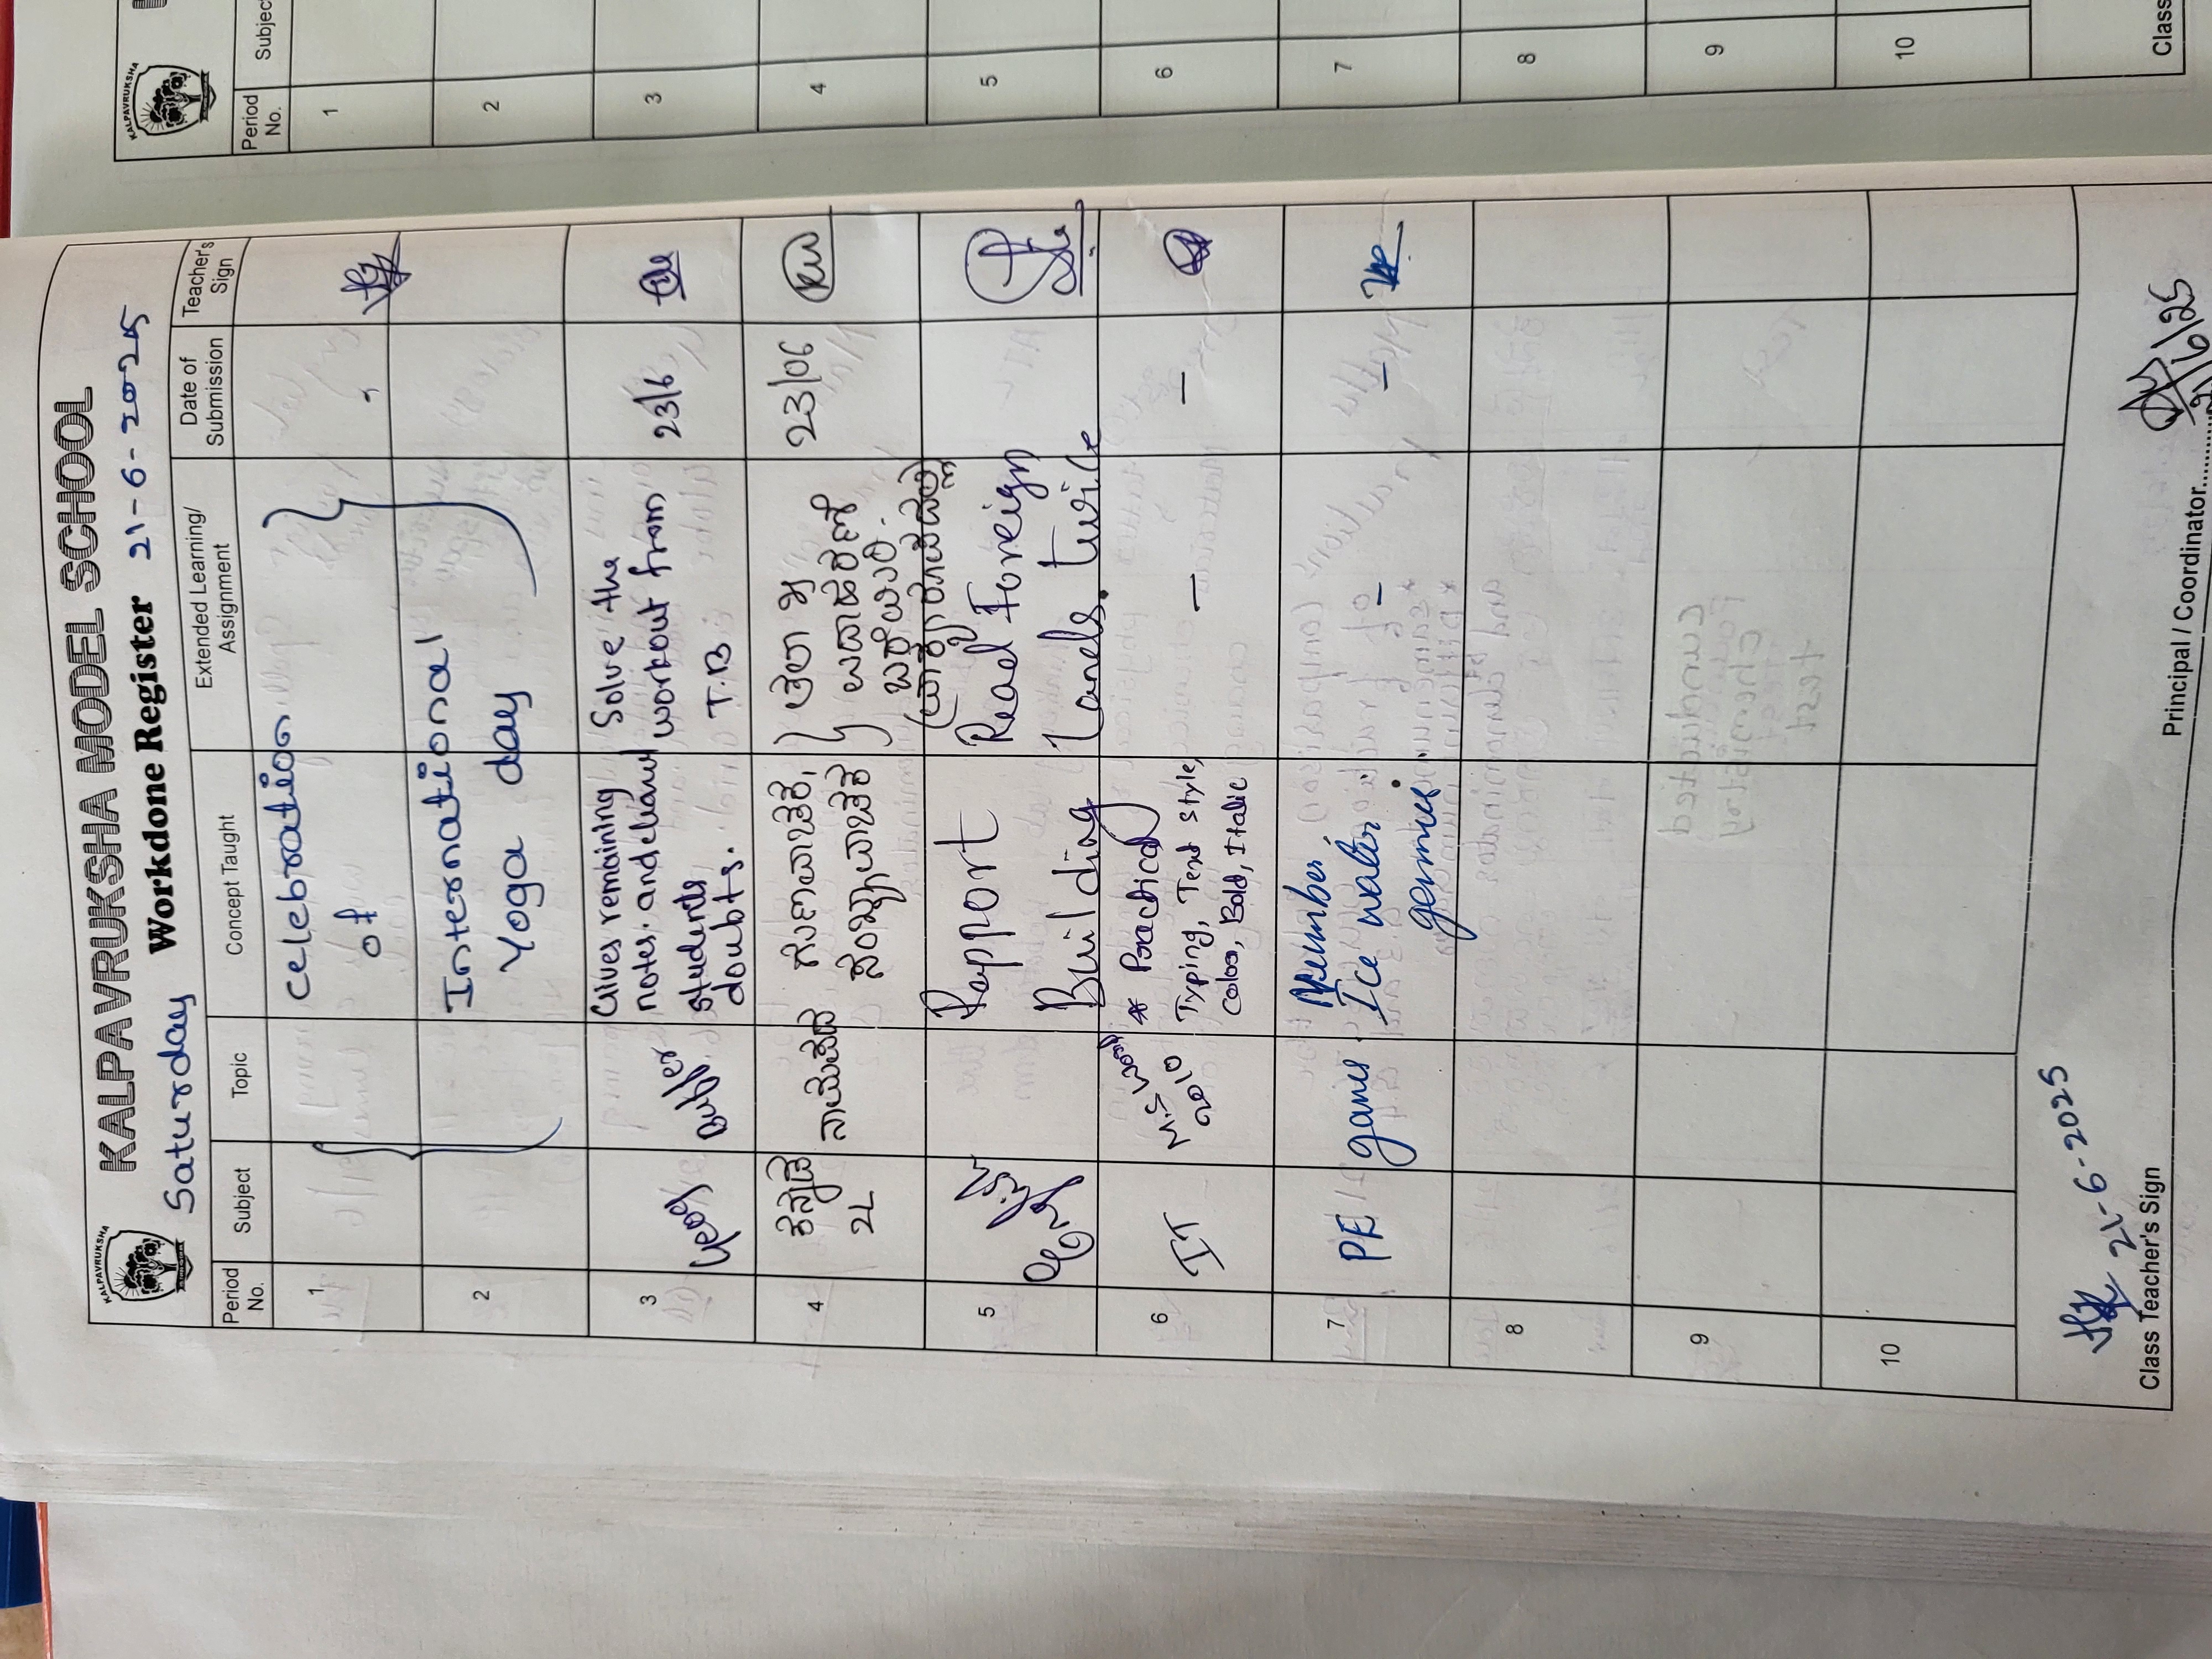 KALPAVRUKSHA
KALPAVRUKSHA MODEL SCHOOL
Saturday Workdone Register 21-6-2025
Period No. Subject Topic Concept Taught Extended Learning/ Assignment Date of Submission Teacher's Sign
1 Celebration
of
2 International
Yoga day
3 Gives remaining
notes. and clear
students
doubts.
Solve the
workout from
T.B
23/6
4 ಕನ್ನಡ
ನಾಮಪದ
ಗುಣವಾಚಕ,
ಸಂಖ್ಯಾವಾಚಕ
ಉದಾಹರಣೆ
ಬರೆಯಿರಿ.
23/06
5 Rapport
Building
Read Foreign
Lands. twice
6 IT
M.S Word
2010
* Practical
Typing, Text style,
Color, Bold, Italic
— —
7 PE games
Number,
Ice water
– –
8
9
10
21-6-2025
Class Teacher's Sign
Principal / Coordinator
21/6/25
KALPAVRUKSHA
Period No. Subject
1
2
3
4
5
6
7
8
9
10
Class